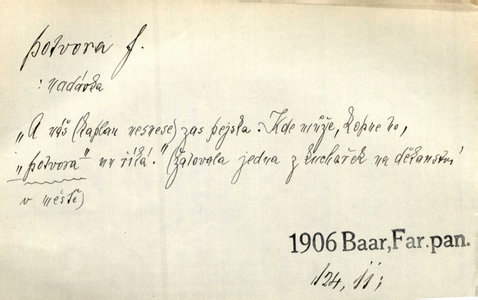 potvora f.
: nadávka
„A náš (kaplan nesnese) zas pejska. Kde může, kopne ho,
„potvora“ mu říká.“ (žalovala jedna z kuchařek na děkanství
v městě)
1906 Baar, Far. pan.
124, ii;